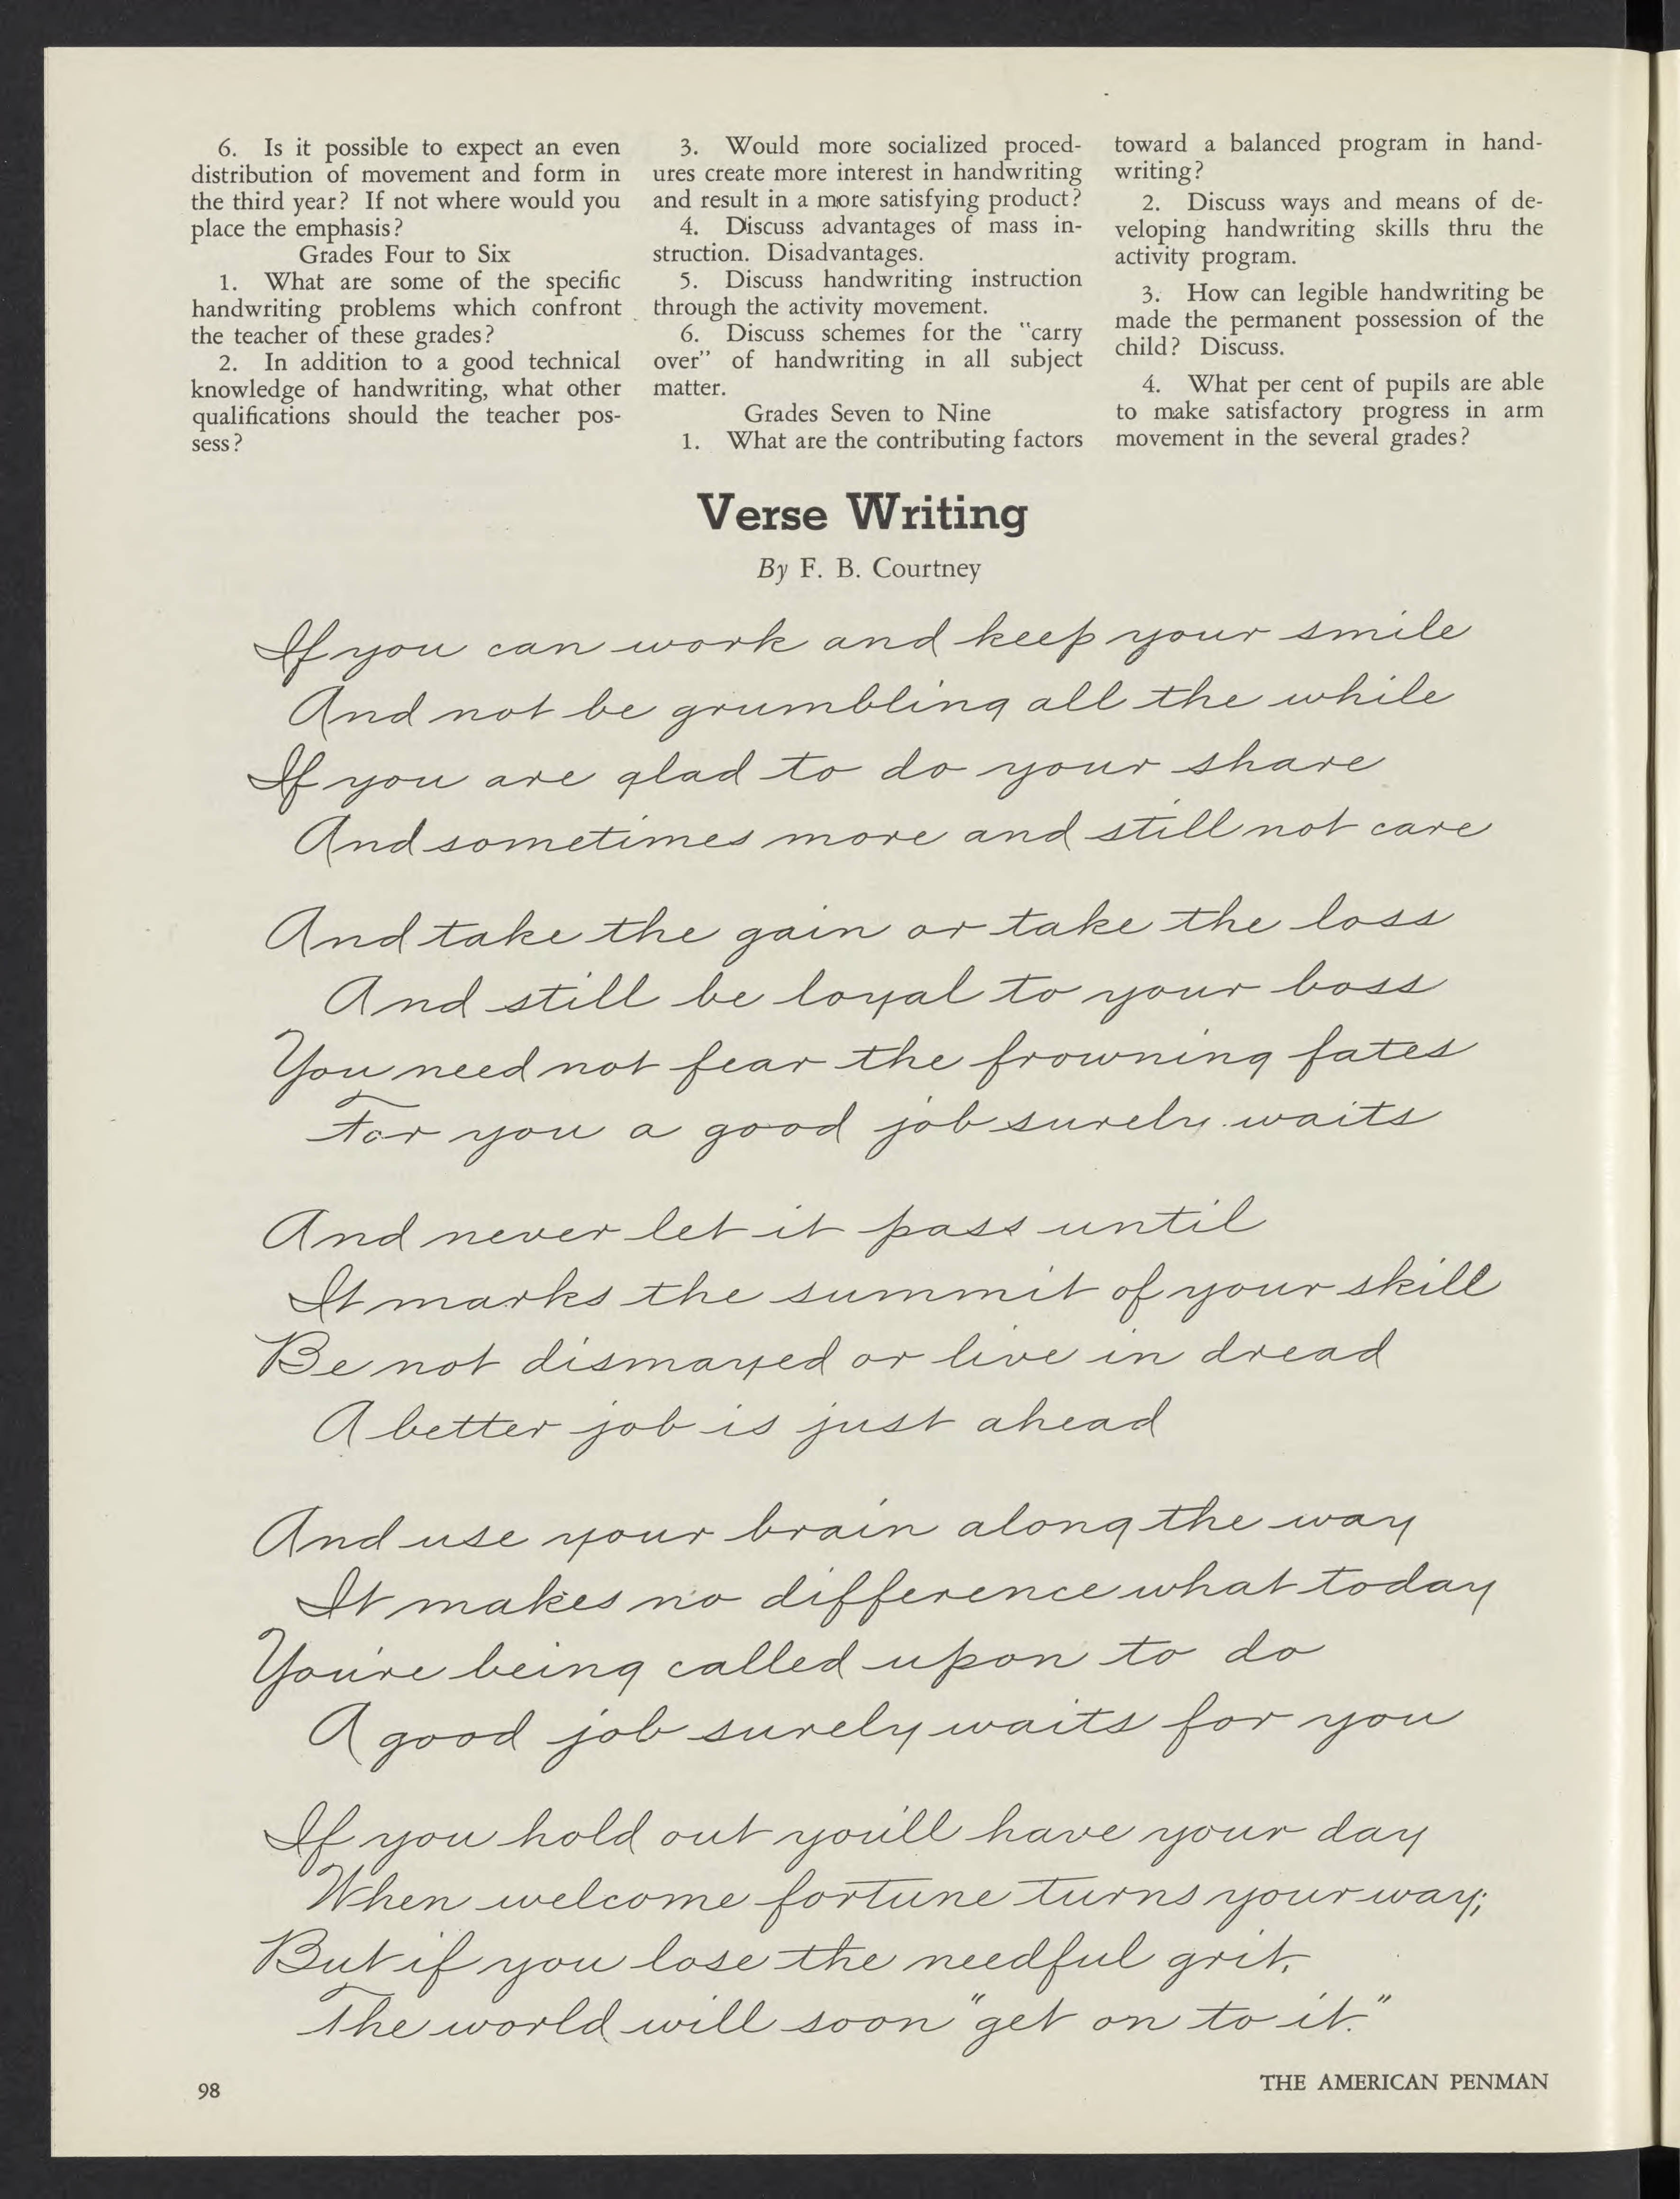 6. Is it possible to expect an even
distribution of movement and form in
the third year? If not where would you
place the emphasis?
Grades Four to Six
1. What are some of the specific
handwriting problems which confront
the teacher of these grades?
2. In addition to a good technical
knowledge of handwriting, what other
qualifications should the teacher pos-
sess?
3. Would more socialized proced-
ures create more interest in handwriting
and result in a more satisfying product?
4. Discuss advantages of mass in-
struction. Disadvantages.
5. Discuss handwriting instruction
through the activity movement.
6. Discuss schemes for the "carry
over" of handwriting in all subject
matter.
Grades Seven to Nine
1. What are the contributing factors
toward a balanced program in hand-
writing?
2. Discuss ways and means of de-
veloping handwriting skills thru the
activity program.
3. How can legible handwriting be
made the permanent possession of the
child? Discuss.
4. What per cent of pupils are able
to make satisfactory progress in arm
movement in the several grades?
Verse Writing
By F. B. Courtney
If you can work and keep your smile
And not be grumbling all the while
If you are glad to do your share
And sometimes more and still not care
And take the gain or take the loss
And still be loyal to your boss
You need not fear the frowning fates
For you a good job surely waits
And never let it pass until
It marks the summit of your skill
Be not dismayed or live in dread
A better job is just ahead
And use your brain along the way
It makes no difference what today
You're being called upon to do
A good job surely waits for you
If you hold out you'll have your day
When welcome fortune turns your way;
But if you lose the needful grit,
The world will soon "get on to it."
98
THE AMERICAN PENMAN